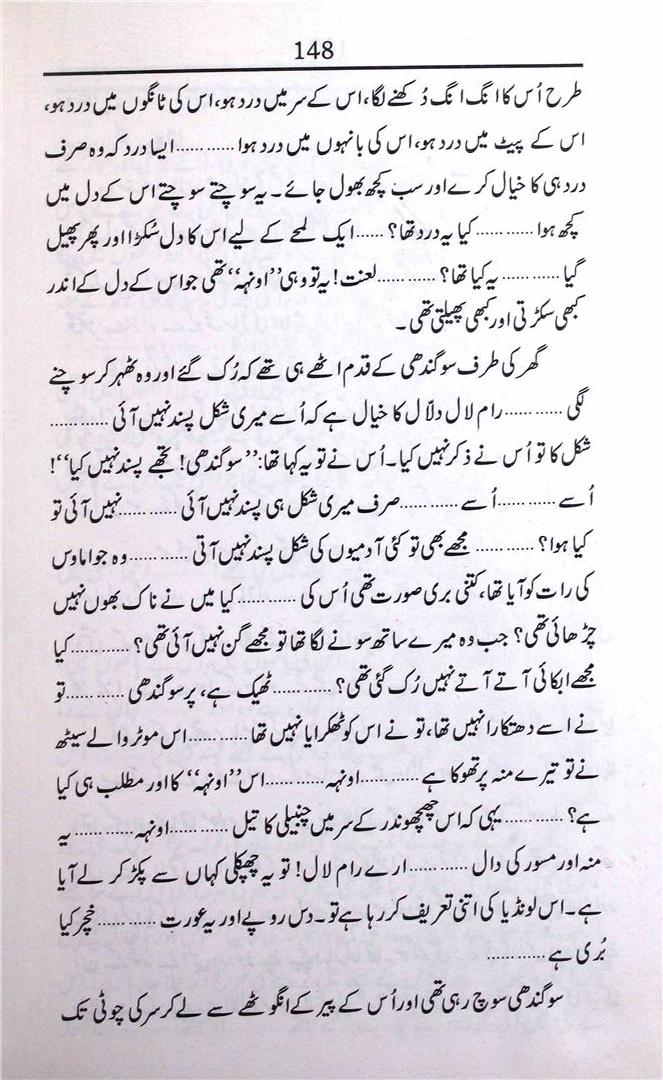 148
طرح اُس کا انگ انگ دُکھنے لگا، اس کے سر میں درد ہو، اس کی ٹانگوں میں درد ہو،
اس کے پیٹ میں درد ہو، اس کی بانہوں میں درد ہوا ............ ایسا درد کہ وہ صرف
درد ہی کا خیال کرے اور سب کچھ بھول جائے۔ یہ سوچتے سوچتے اس کے دل میں
کچھ ہوا ............ کیا یہ درد تھا؟ ...... ایک لمحے کے لیے اس کا دل سُکڑا اور پھر پھیل
گیا ............ یہ کیا تھا؟ ............ لعنت! یہ تو وہی ’’اونہہ‘‘ تھی جو اس کے دل کے اندر
کبھی سکڑتی اور کبھی پھیلتی تھی۔
گھر کی طرف سوگندھی کے قدم اٹھے ہی تھے کہ رُک گئے اور وہ ٹھہر کر سوچنے
لگی ............ رام لال دلّال کا خیال ہے کہ اُسے میری شکل پسند نہیں آئی ............
شکل کا تو اُس نے ذکر نہیں کیا۔ اُس نے تو یہ کہا تھا: ’’سوگندھی! تجھے پسند نہیں کیا‘‘!
اُسے ............ اُسے ............ صرف میری شکل ہی پسند نہیں آئی ............ نہیں آئی تو
کیا ہوا؟ ............ مجھے بھی تو کئی آدمیوں کی شکل پسند نہیں آتی ............ وہ جو اماوس
کی رات کو آیا تھا، کتنی بری صورت تھی اُس کی ............ کیا میں نے ناک بھوں نہیں
چڑھائی تھی؟ جب وہ میرے ساتھ سونے لگا تھا تو مجھے گھن نہیں آئی تھی؟ ............ کیا
مجھے ابکائی آتے آتے نہیں رُک گئی تھی؟ ............ ٹھیک ہے، پر سوگندھی ............ تو
نے اسے دھتکارا نہیں تھا، تو نے اس کو ٹھکرایا نہیں تھا ............ اس موٹر والے سیٹھ
نے تو تیرے منہ پر تھوکا ہے ............ اونہہ ............ اس ’’اونہہ‘‘ کا اور مطلب ہی کیا
ہے؟ ............ یہی کہ اس چھچھوندر کے سر میں چنبیلی کا تیل ............ اونہہ ............ یہ
منہ اور مسور کی دال ............ ارے رام لال! تو یہ چھپکلی کہاں سے پکڑ کر لے آیا
ہے۔ اس لونڈیا کی اتنی تعریف کر رہا ہے تو۔ دس روپے اور یہ عورت ............ خچر کیا
بُری ہے ............
سوگندھی سوچ رہی تھی اور اُس کے پیر کے انگوٹھے سے لے کر سر کی چوٹی تک